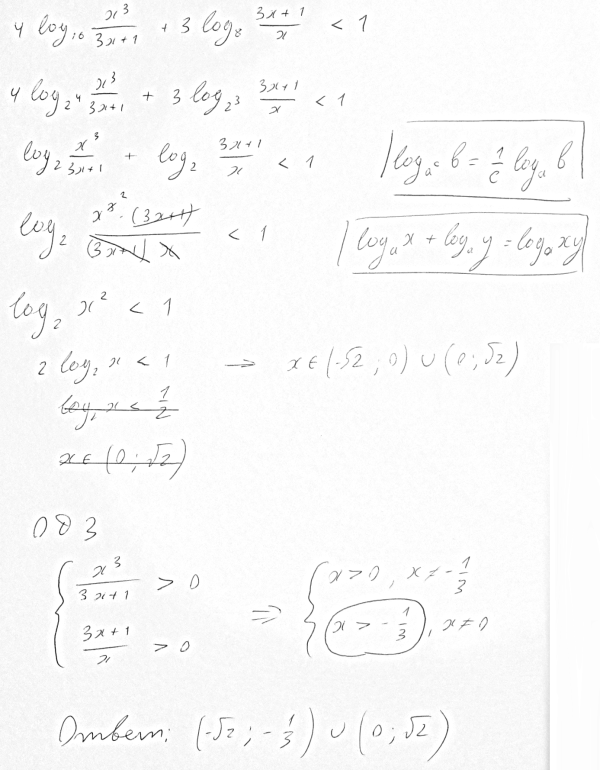 4 log₁₆ x³/(3x+1) + 3 log₈ (3x+1)/x < 1
4 log₂⁴ x³/(3x+1) + 3 log₂³ (3x+1)/x < 1
log₂ x³/(3x+1) + log₂ (3x+1)/x < 1
|logₐᶜ b = 1/c logₐ b
log₂ x³² · (3x+1)/((3x+1) x) < 1
|logₐ x + logₐ y = logₐ xy
log₂ x² < 1
2 log₂ x < 1 → x ∈ (-√2 ; 0) ∪ (0 ; √2)
log₂ x < 1/2
x ∈ (0 ; √2)
ОДЗ
{ x³/(3x+1) > 0 ⇒ { x > 0, x ≠ -1/3
(3x+1)/x > 0 x > -1/3, x ≠ 0
Ответ: (-√2 ; -1/3) ∪ (0 ; √2)